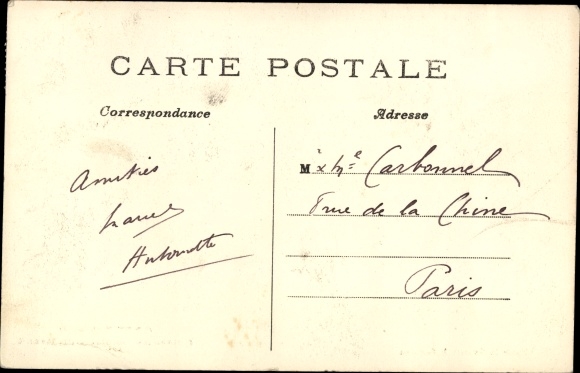 CARTE POSTALE
Correspondance
Adresse
Amitiés
Antoinette
M r & Me Carbonnel
rue de la Chine
Paris